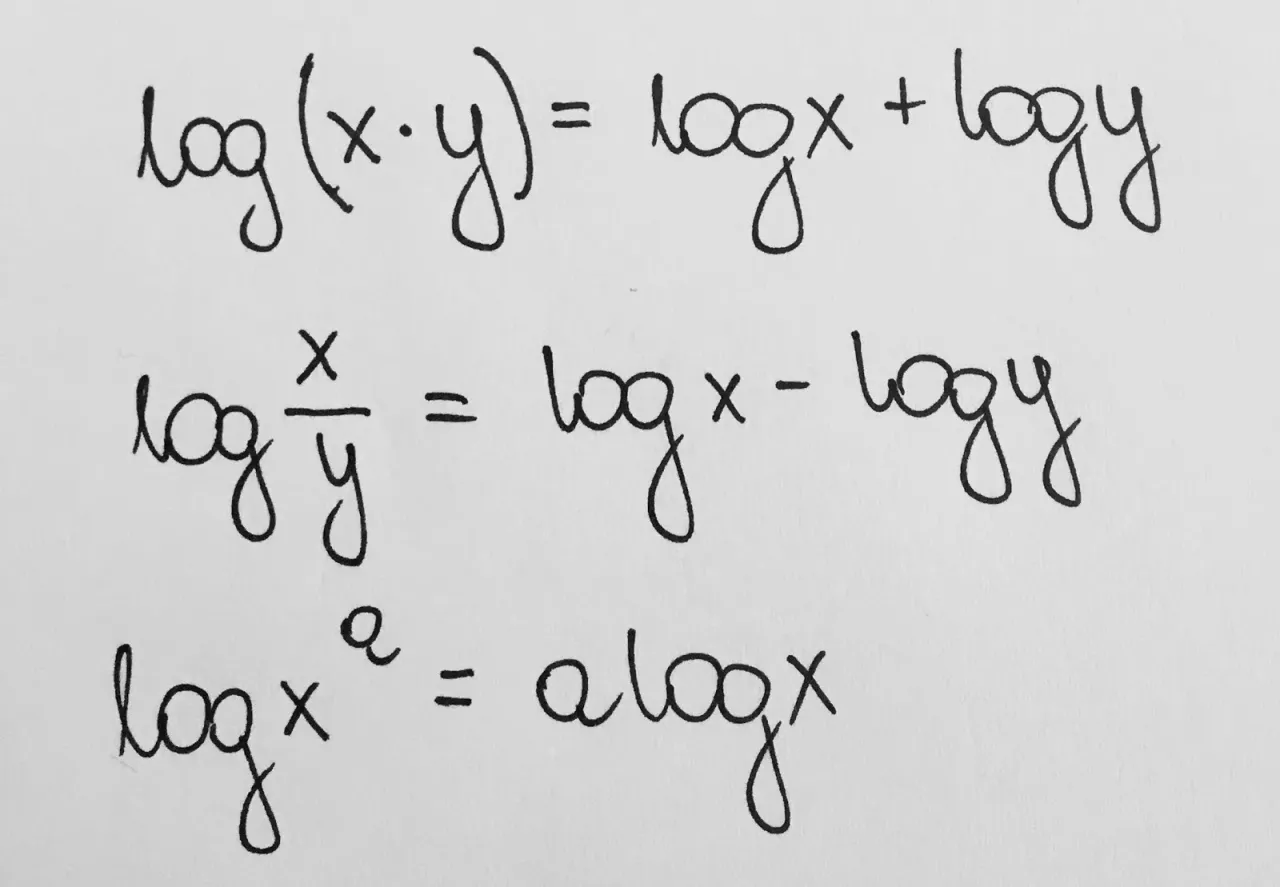 log(x·y) = logx + logy
log x/y = log x - logy
logx^a = alogx